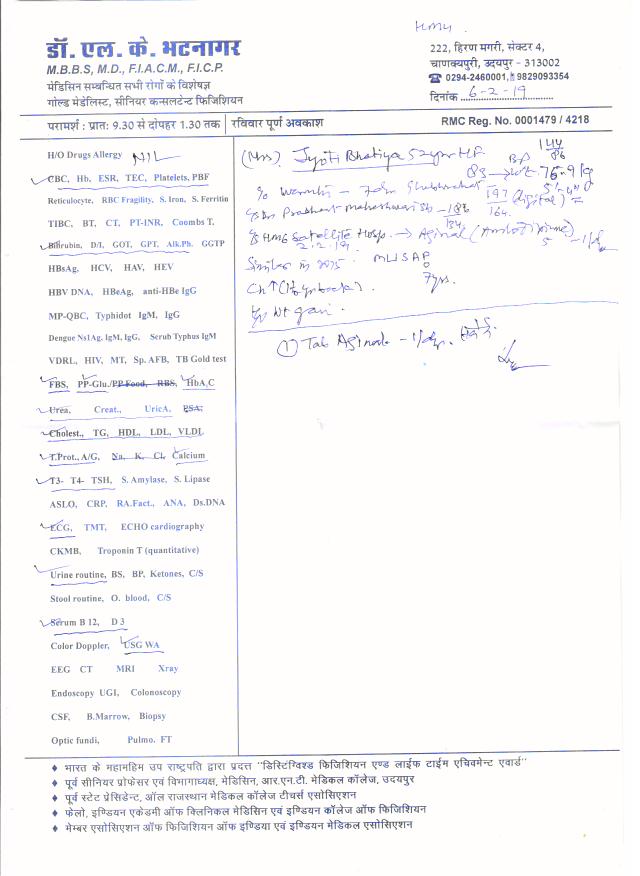 HMG
डॉ. एल. के. भटनागर
M.B.B.S, M.D., F.I.A.C.M., F.I.C.P.
मेडिसिन सम्बन्धित सभी रोगों के विशेषज्ञ
गोल्ड मेडेलिस्ट, सीनियर कन्सलटेन्ट फिजिशियन
222, हिरण मगरी, सेक्टर 4,
चाणक्यपुरी, उदयपुर - 313002
☎ 0294-2460001, 9829093354
दिनांक 6-2-19
परामर्श : प्रातः 9.30 से दोपहर 1.30 तक | रविवार पूर्ण अवकाश RMC Reg. No. 0001479 / 4218
H/O Drugs Allergy NIL
CBC, Hb, ESR, TEC, Platelets, PBF
Reticulocyte, RBC Fragility, S. Iron, S. Ferritin
TIBC, BT, CT, PT-INR, Coombs T.
Bilirubin, D/I, GOT, GPT, Alk.Ph. GGTP
HBsAg, HCV, HAV, HEV
HBV DNA, HBeAg, anti-HBe IgG
MP-QBC, Typhidot IgM, IgG
Dengue Ns1Ag, IgM, IgG, Serub Typhus IgM
VDRL, HIV, MT, Sp. AFB, TB Gold test
FBS, PP-Glu./PP Food, RBS, HbA,C
Urea, Creat., UricA, PSA,
Cholest., TG, HDL, LDL, VLDL
T.Prot., A/G, Na, K, Cl, Calcium
T3- T4- TSH, S. Amylase, S. Lipase
ASLO, CRP, RA.Fact., ANA, Ds.DNA
ECG, TMT, ECHO cardiography
CKMB, Troponin T (quantitative)
Urine routine, BS, BP, Ketones, C/S
Stool routine, O. blood, C/S
Serum B 12, D 3
Color Doppler, USG WA
EEG CT MRI Xray
Endoscopy UGI, Colonoscopy
CSF, B.Marrow, Biopsy
Optic fundi, Pulmo. FT
(Mrs). Jyoti Bhatiya 52yr HF BP 144/86
83 → Wt. 76.9 kg
Prabhant Maheshwari Sb - 186/134 197/164 (digital)
HMG Satellite Hosp. → Aginal (Amlodipine) 5 - 1/d
2.2.19
Similar in 2015.
7yrs.
Wt gain.
① Tab Aginal - 1/d.
♦ भारत के महामहिम उप राष्ट्रपति द्वारा प्रदत्त "डिस्टिंग्विश्ड फिजिशियन एण्ड लाईफ टाईम एचिवमेन्ट एवार्ड"
♦ पूर्व सीनियर प्रोफेसर एवं विभागाध्यक्ष, मेडिसिन, आर.एन.टी. मेडिकल कॉलेज, उदयपुर
♦ पूर्व स्टेट प्रेसिडेन्ट, ऑल राजस्थान मेडिकल कॉलेज टीचर्स एसोसिएशन
♦ फेलो, इण्डियन एकेडमी ऑफ क्लिनिकल मेडिसिन एवं इण्डियन कॉलेज ऑफ फिजिशियन
♦ मेम्बर एसोसिएशन ऑफ फिजिशियन ऑफ इण्डिया एवं इण्डियन मेडिकल एसोसिएशन